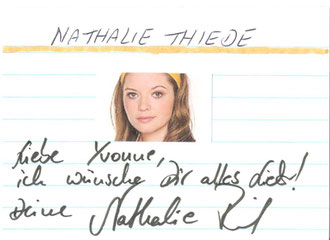 NATHALIE THIEDE
Liebe Yvonne,
ich wünsche Dir alles Liebe!
Deine Nathalie